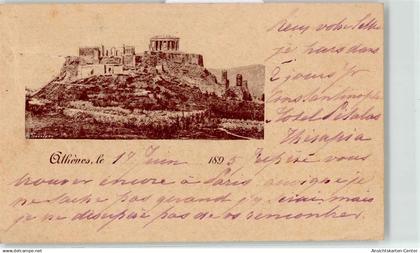 Reçu votre lettre
je pars dans
2 jours pr
Constantinople
Hotel Petalas
Thérapia
Athènes, le 17 Juin 1895 J'espère vous
trouver encore à Paris, quoique je
ne sache pas quand j'y irai, mais
je ne désespère pas de vous rencontrer.
Ansichtskarten-Center